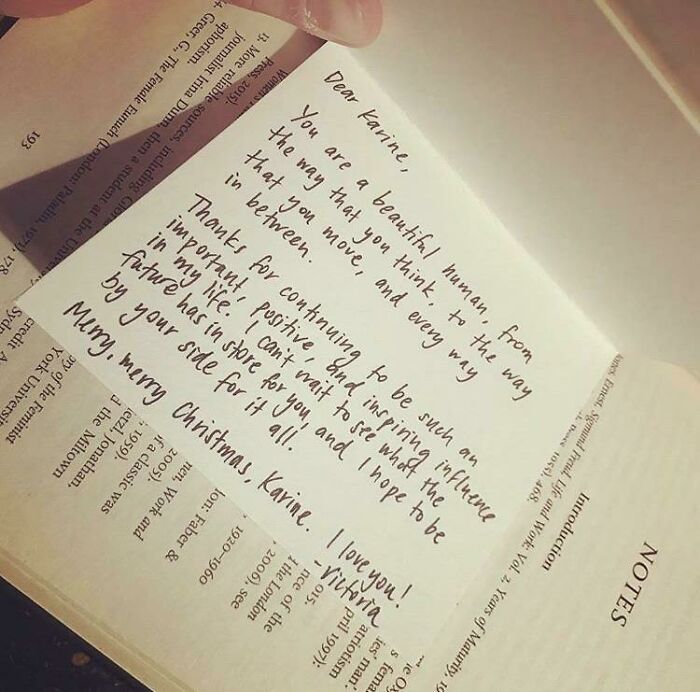 Dear Karine,
You are a beautiful human, from
the way that you think, to the way
that you move, and every way
in between.
Thanks for continuing to be such an
important, positive, and inspiring influence
in my life. I can't wait to see what the
future has in store for you, and I hope to be
by your side for it all.
Merry, merry Christmas, Karine.
I love you!
-Victoria
NOTES
Introduction
Ernest, Sigmund Freud, Life and Work: Vol. 2, Years of Maturity,
468.
193
Greer, G., The Female Eunuch (London: Paladin, 1971),
aphorism.
journalist Irina Dunn, then a student at the
13. More reliable sources, including
Press, 2015).
178
Sydn
credit A
York Universit
ory of the Feminist
the Miltown
etzl, Jonathan,
1959).
if a classic was
2005).
Work and
lon: Faber &
1920–1960
2006), see
the London
nce of the
2015.
atriotism
pril 1997):
ies' man'